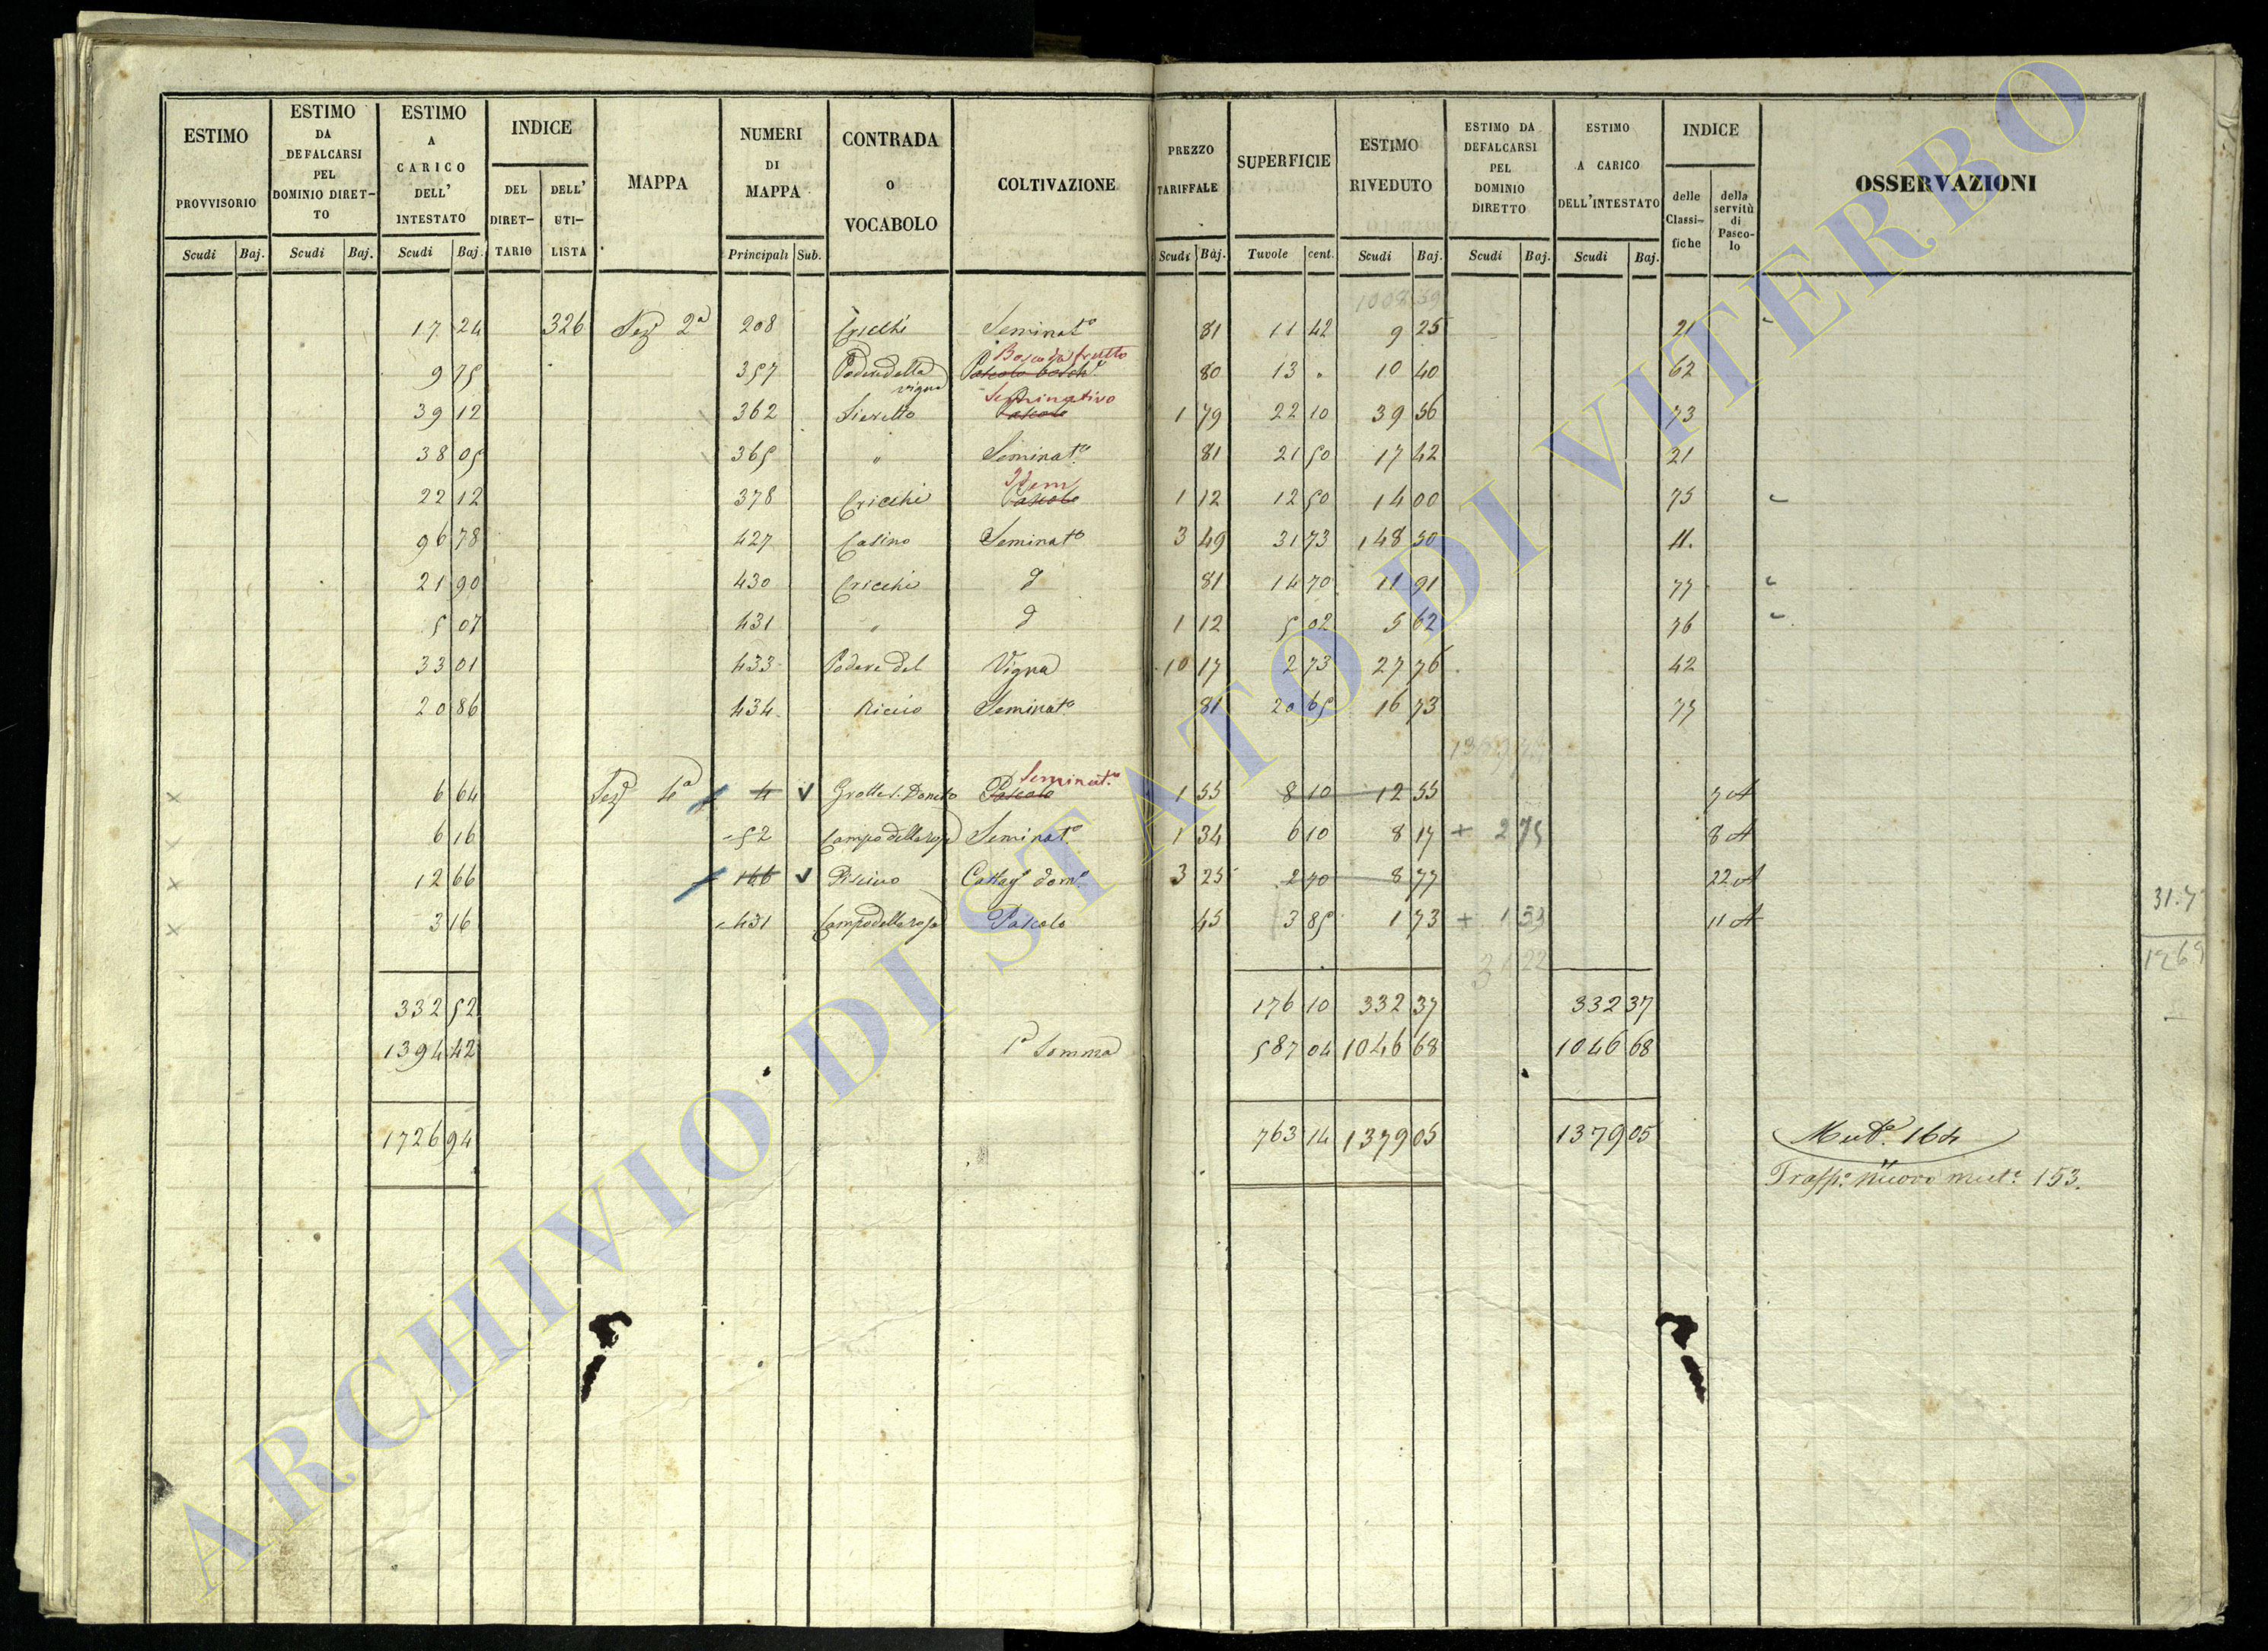 ESTIMO PROVVISORIO Scudi Baj.
ESTIMO DA DEFALCARSI PEL DOMINIO DIRETTO Scudi Baj.
ESTIMO A CARICO DELL' INTESTATO Scudi Baj.
INDICE DEL DIRETTARIO DELL' UTILISTA
MAPPA
NUMERI DI MAPPA Principali Sub.
CONTRADA o VOCABOLO
COLTIVAZIONE
PREZZO TARIFFALE Scudi Baj.
SUPERFICIE Tavole cent.
ESTIMO RIVEDUTO Scudi Baj.
ESTIMO DA DEFALCARSI PEL DOMINIO DIRETTO Scudi Baj.
ESTIMO A CARICO DELL'INTESTATO Scudi Baj.
INDICE delle Classifiche della servitù di Pascolo
OSSERVAZIONI
1008 39
17 24 326 Sez 2a 208 Cricchi Seminato 81 11 42 9 25 21
Bosco da frutto
9 75 357 Podere della vigna Pascolo bosch 80 13 " 10 40 62
Seminativo
39 12 362 Pascolo 1 79 22 10 39 56 73
38 05 365 " Seminato 81 21 50 17 42 21
Idem
22 12 378 Cricchi Pascolo 1 12 12 50 14 00 75
96 78 427 Casino Seminato 3 49 31 73 148 50 11.
21 90 430 Cricchi d 81 14 70 11 91 77
5 07 431 " d 1 12 5 02 5 62 76
33 01 433 Podere del Vigna 10 17 2 73 27 76 42
20 86 434 Riccio Seminato 81 20 65 16 73 77
Seminato
x 6 64 Sez 4a 4 v Grotte S. Donato Pascolo 1 55 8 10 12 55 7 A
6 16 52 Campo della rosa Seminato 1 34 6 10 8 17 + 2 75 8 A
x 12 66 166 v Piscino 3 25 2 70 8 77 22 A
x 3 16 431 Campo della rosa Pascolo 45 3 85 1 73 + 1 53 11 A
332 52 176 10 332 37 332 37
1394 42 1a Somma 587 04 1046 68 1046 68
1726 94 763 14 1379 05 1379 05 Muta 164
Trasp. nuovo mut. 153.
1269
ARCHIVIO DI STATO DI VITERBO